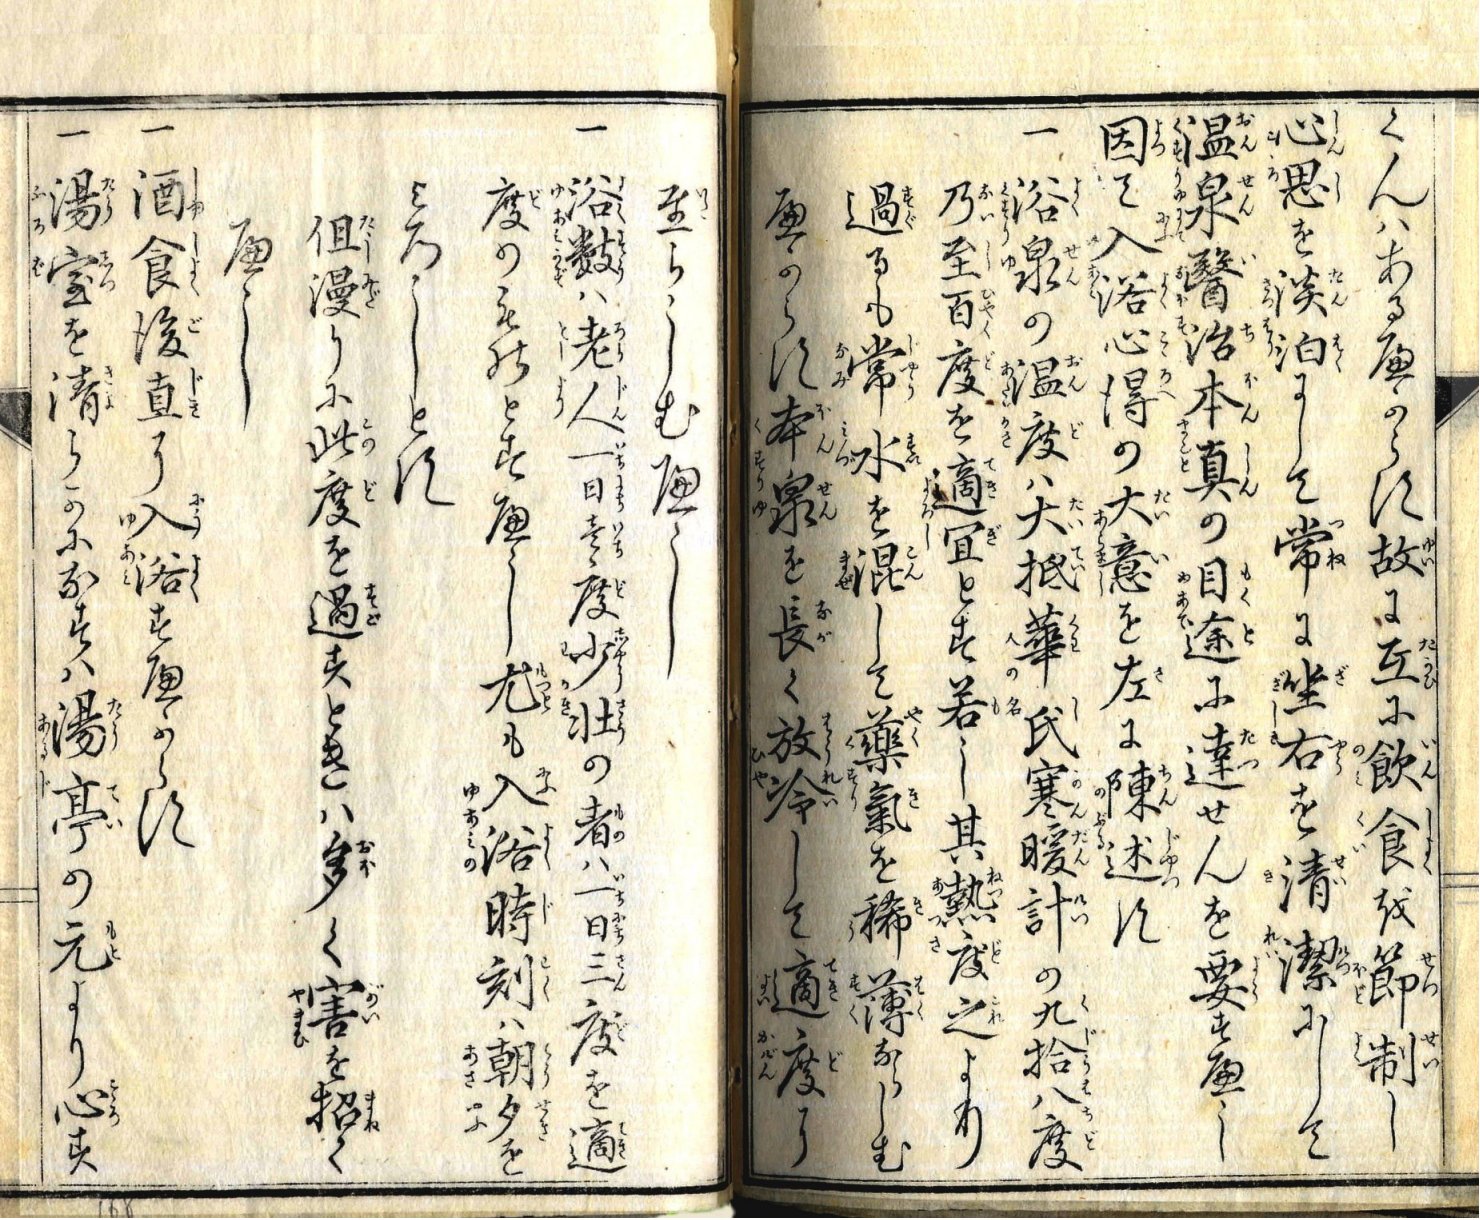 くんハある可からす故に互に飲食を節制し
心思を淡泊にして常に坐右を清潔にして
温泉醫治本真の目途に達せんを要す可し
因て入浴心得の大意を左に陳述す
一 浴泉の温度ハ大抵華氏寒暖計の九拾八度
乃至百度を適宜とす若し其熱度之より
過るも常水を混して藥氣を稀薄ならしむ
可からす本泉を長く放冷して適度に
至らしむ可し
一 浴数ハ老人一日壱度少壮の者ハ一日三度を適
度のものとす可し尤も入浴時刻ハ朝夕を
よろしとす
但漫りに此度を過すときハ多く害を招く
可し
一 酒食後直に入浴す可からす
一 湯室を清らかになすハ湯亭の元より心す